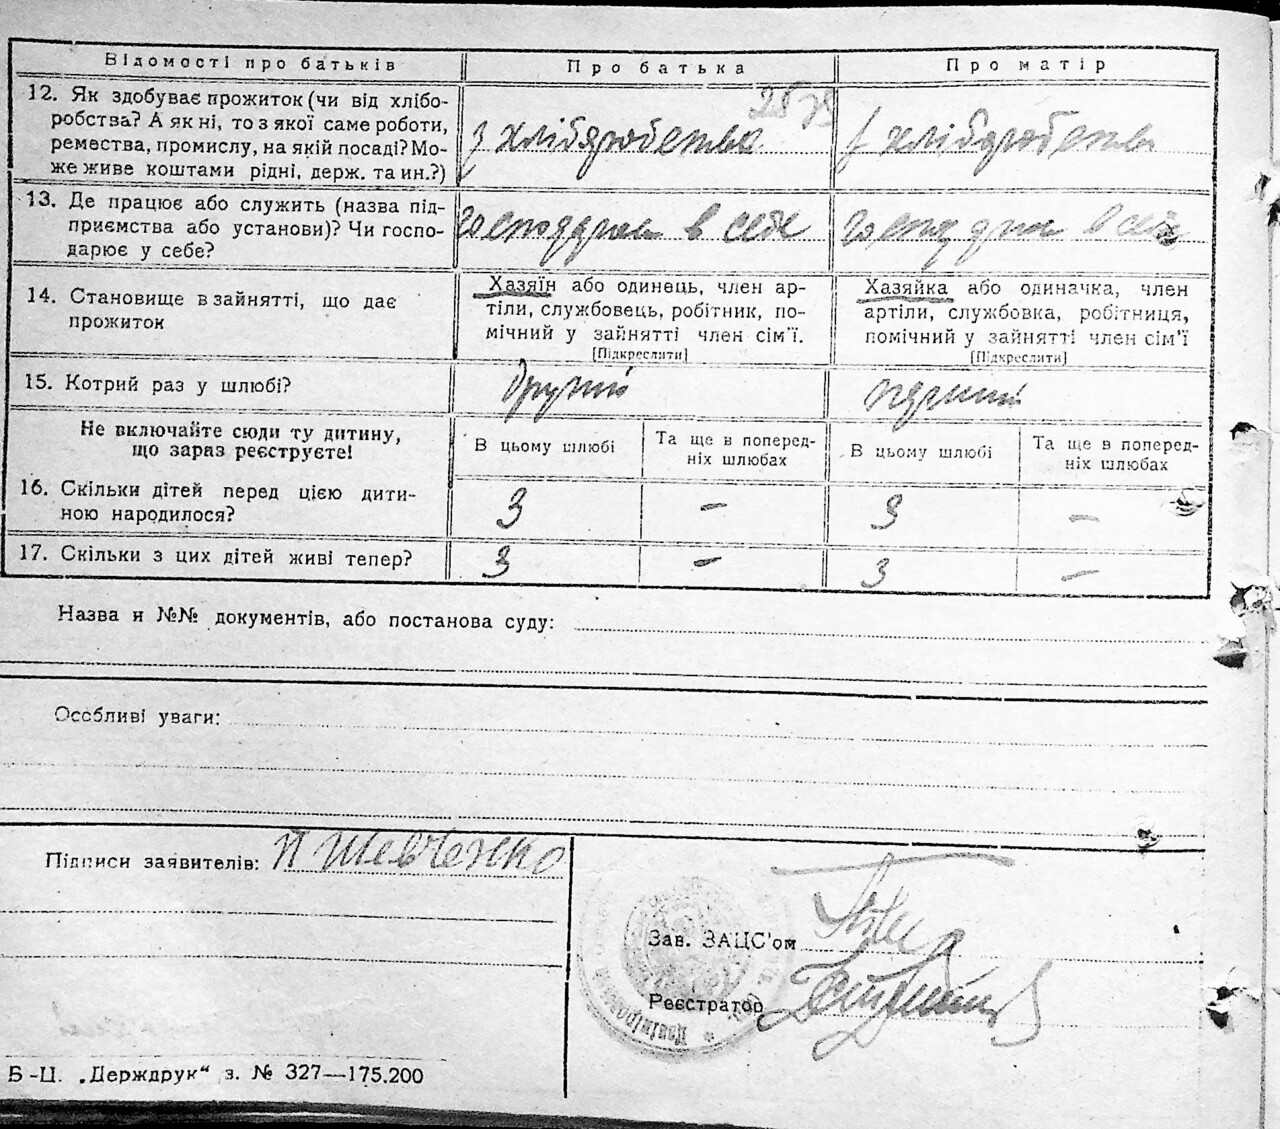 Відомості про батьків Про батька Про матір
12. Як здобуває прожиток (чи від хлібо-
робства? А як ні, то з якої саме роботи,
ремества, промислу, на якій посаді? Мо-
же живе коштами рідні, держ. та ин.?)
з хліборобства з хліборобства
13. Де працює або служить (назва під-
приємства або установи)? Чи госпо-
дарює у себе?
господарює в себе господарює в себе
14. Становище в зайнятті, що дає
прожиток
Хазяїн або одинець, член ар-
тілі, службовець, робітник, по-
мічний у зайнятті член сім'ї.
[Підкреслити]
Хазяйка або одиначка, член
артілі, службовка, робітниця,
помічний у зайнятті член сім'ї
[Підкреслити]
15. Котрий раз у шлюбі? другий перший
Не включайте сюди ту дитину,
що зараз реєструєте!
В цьому шлюбі
Та ще в поперед-
ніх шлюбах
В цьому шлюбі
Та ще в поперед-
ніх шлюбах
16. Скільки дітей перед цією дити-
ною народилося?
3 – 3 –
17. Скільки з цих дітей живі тепер? 3 – 3 –
Назва й №№ документів, або постанова суду:
Особливі уваги:
Підписи заявителів: П Шевченко
Зав. ЗАЦС'ом
Реєстратор
Б-Ц. „Держдрук“ з. № 327—175.200